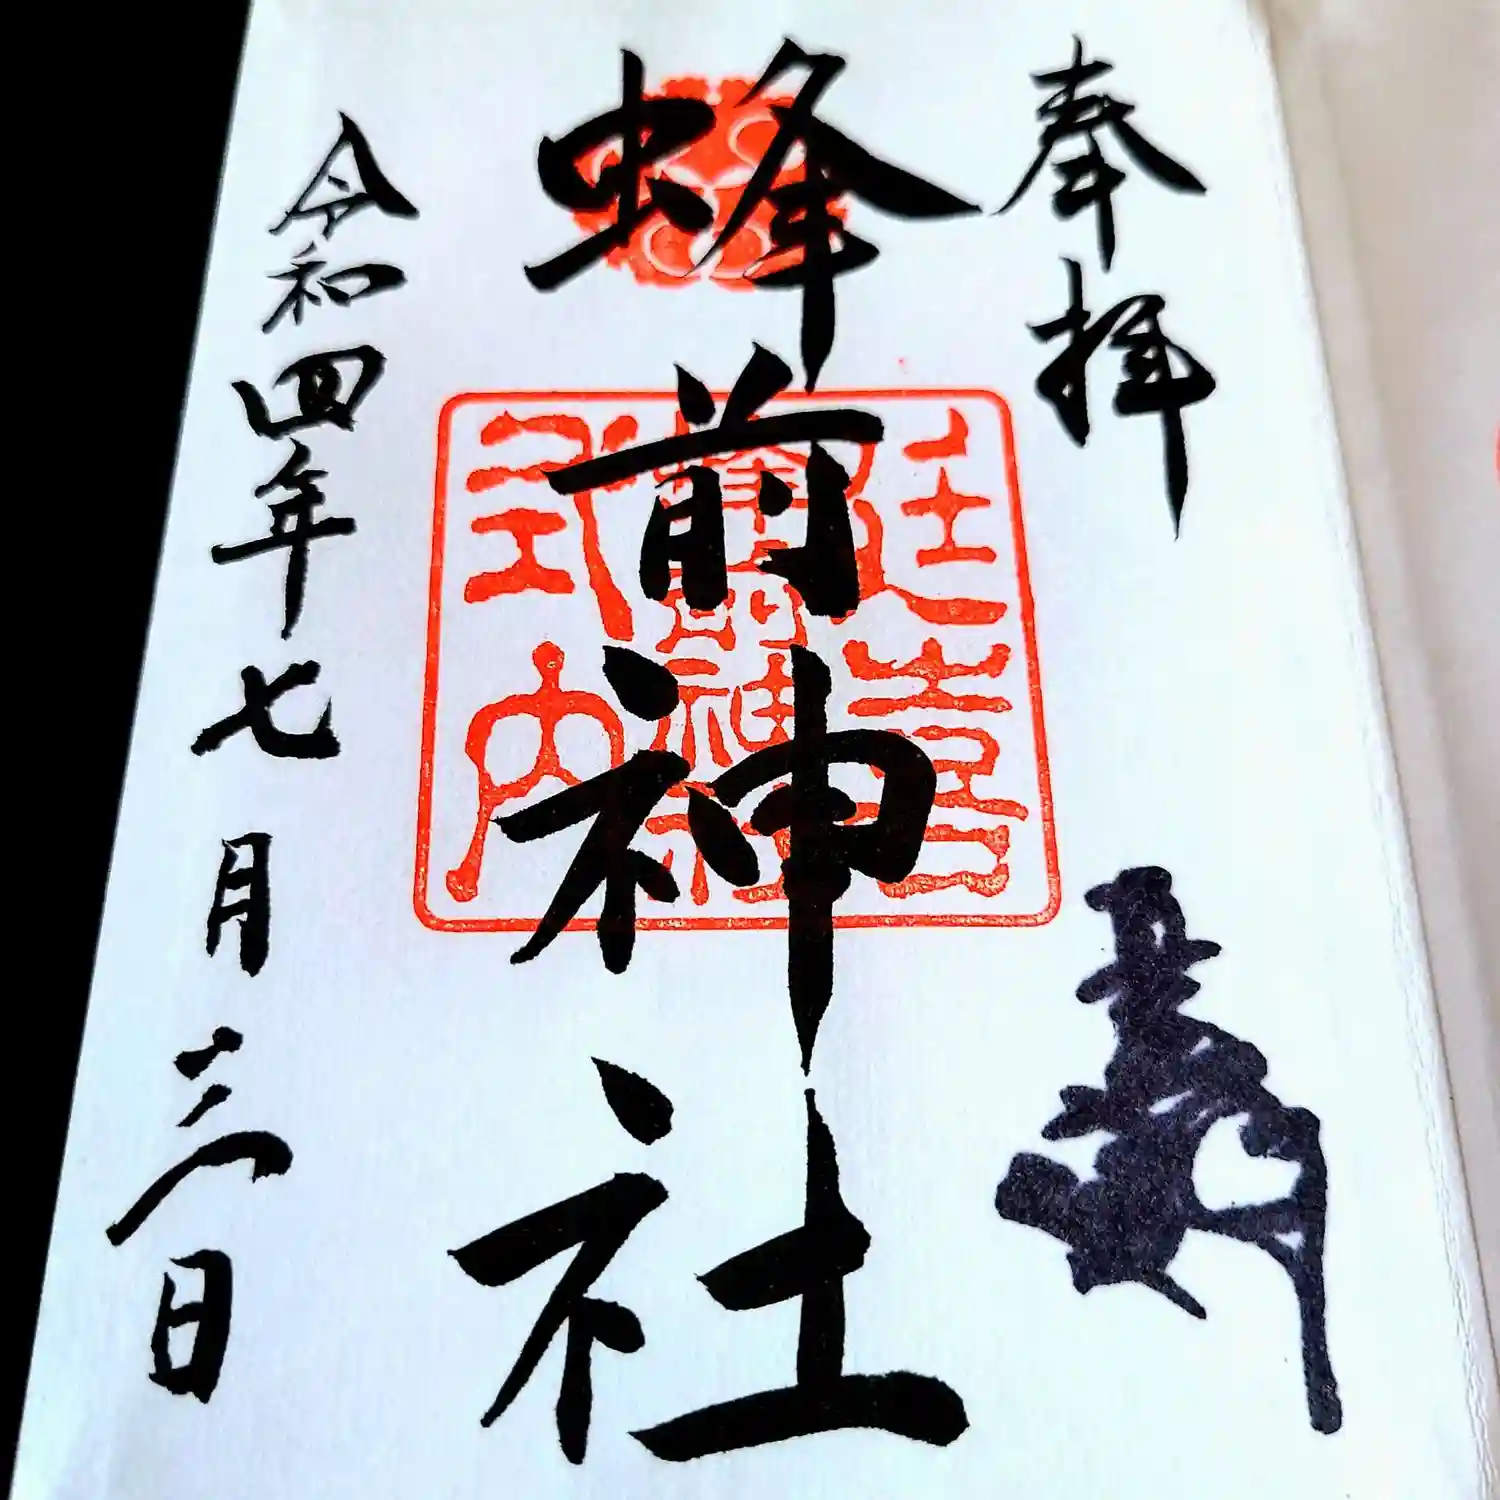 奉拝
蜂前神社
延喜
蜂前神社
式内
令和四年七月三日